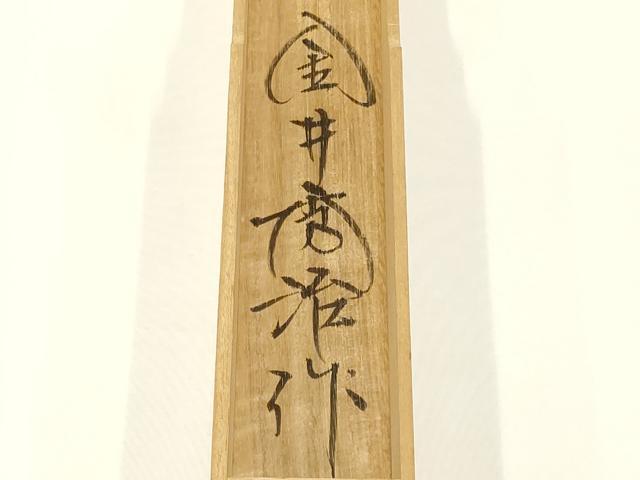 金井秀治作